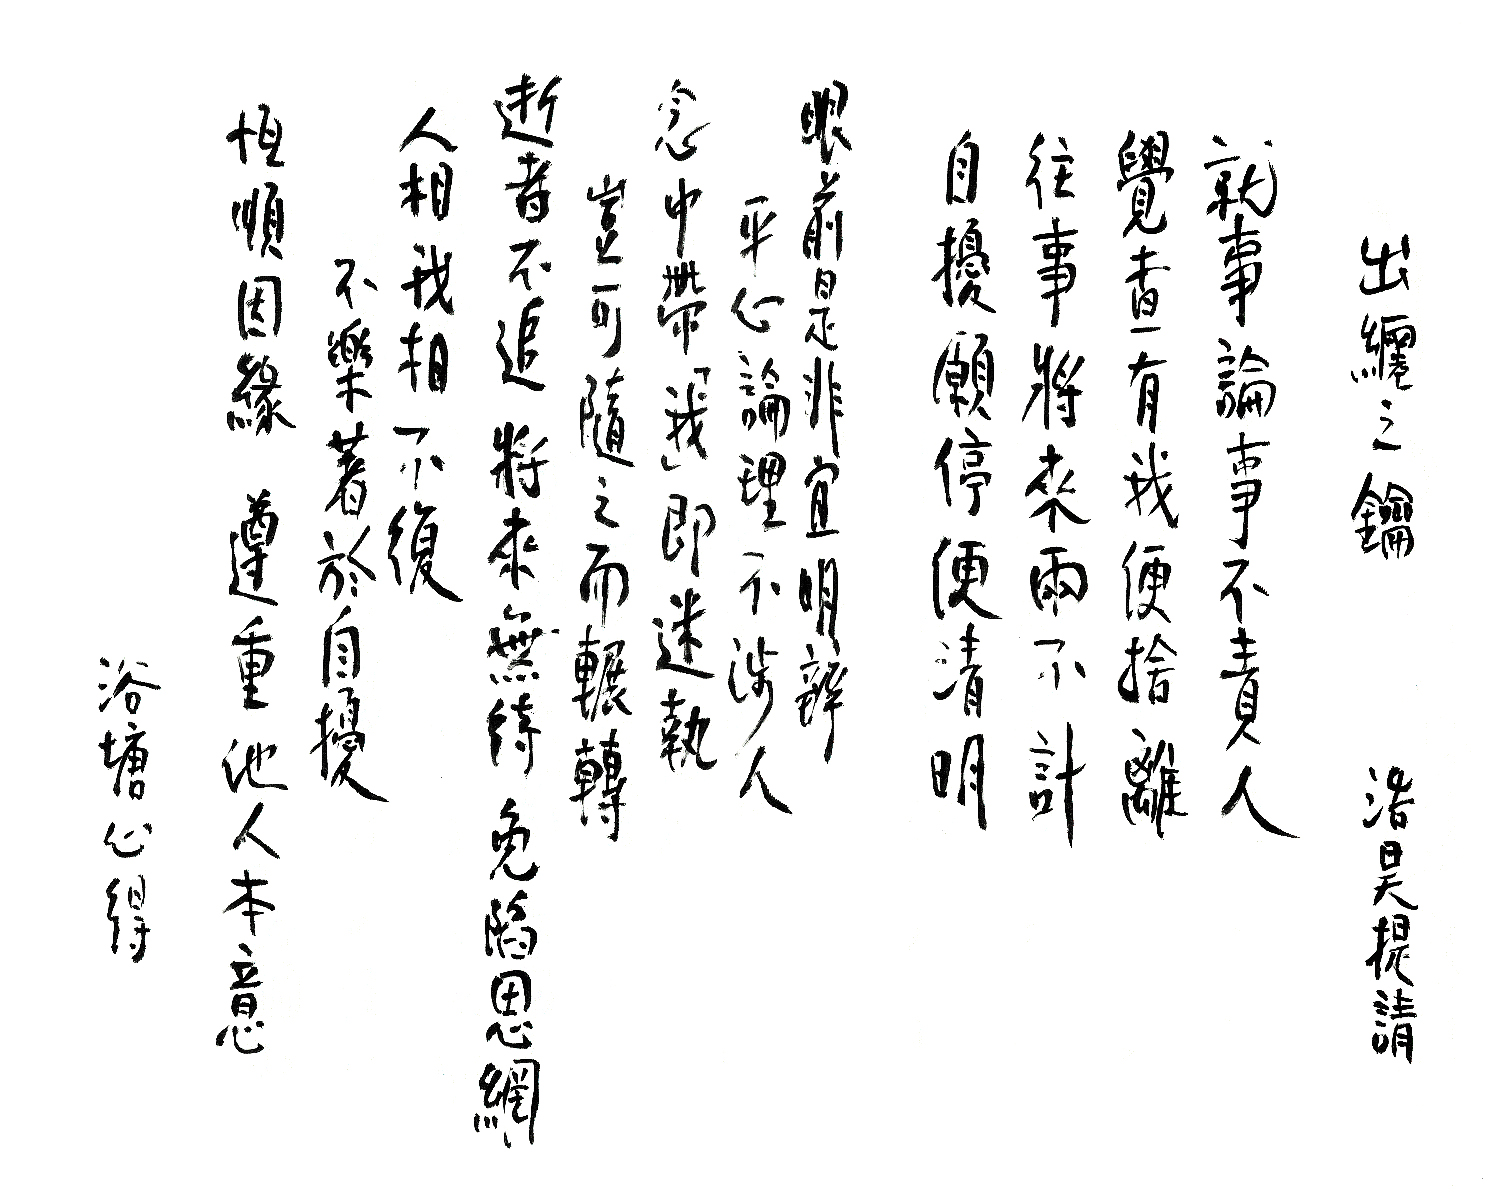 出纏之鑰 浩昊提請
就事論事不責人
覺查有我便捨離
往事將來兩不計
自擾願停便清明
眼前是非宜明辨
平心論理不涉人
念中帶「我」即迷執
豈可隨之而輾轉
逝者不追 將來無待 免陷恩網
人相我相不復
不樂著於自擾
恆順因緣 遵重他人本意
浴塘心得